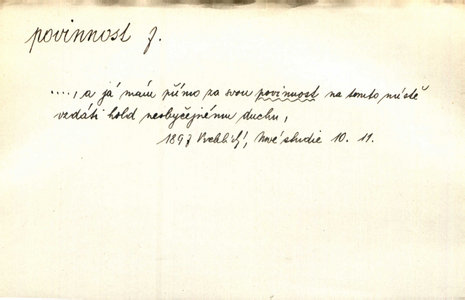 povinnost f.
...., a já mám přímo za svou povinnost na tomto místě
vzdáti hold neobyčejnému duchu,
1897 Vrchlický, Nové studie 10. 11.